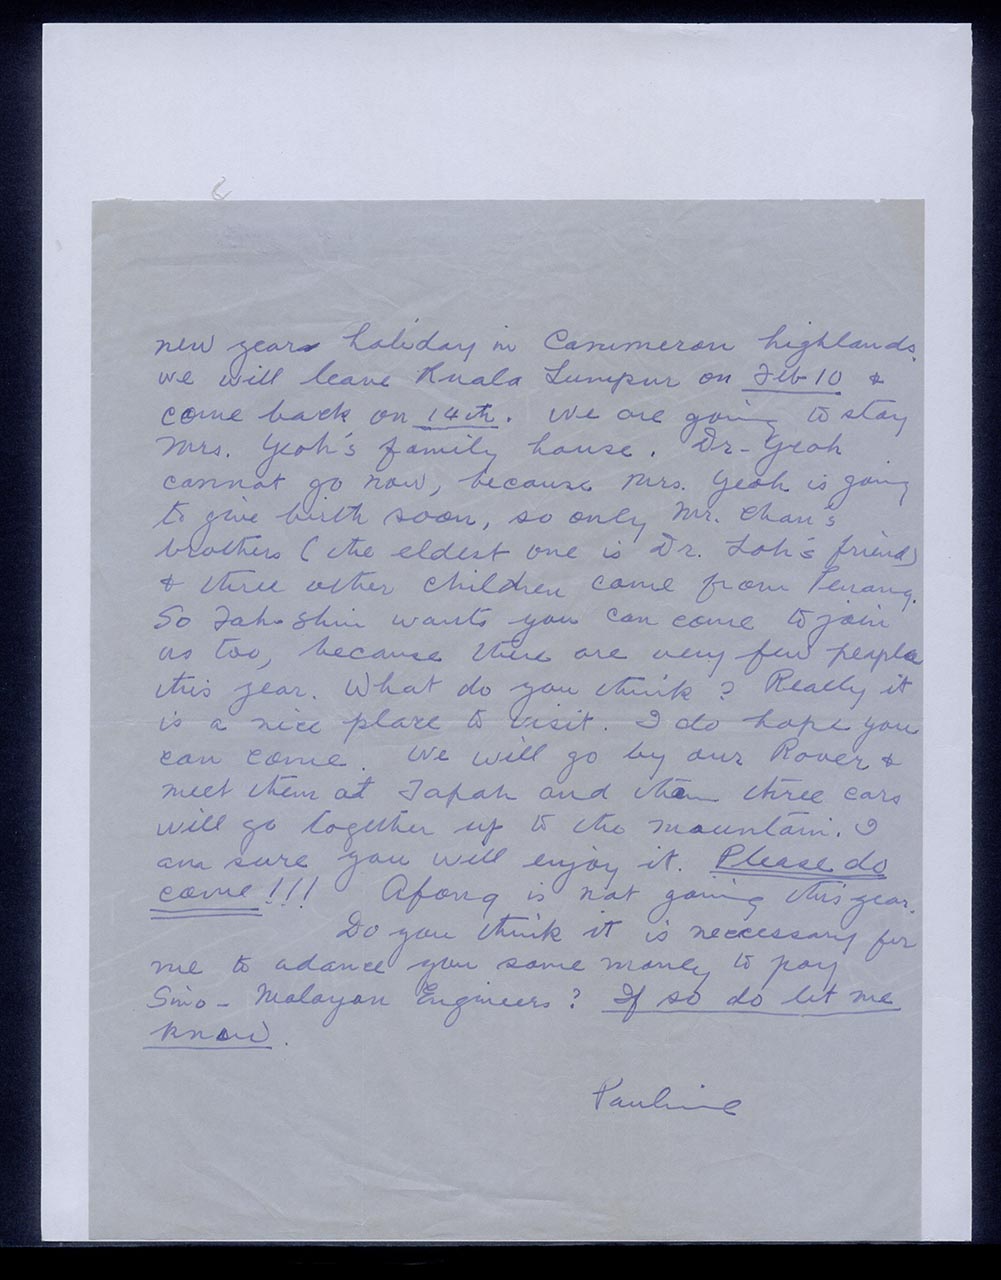 new years holiday in Cammeron highlands.
we will leave Kuala Lumpur on Feb 10 &
come back on 14th. We are going to stay
Mrs. Yeoh's family house. Dr-Yeoh
cannot go now, because Mrs. Yeoh is going
to give birth soon, so only Mr. Chan's
brothers (the eldest one is Dr. Loh's friend)
& three other children come from Penang.
So Fah-Shin wants you can come to join
us too, because there are very few people
this year. What do you think? Really it
is a nice place to visit. I do hope you
can come. We will go by our Rover &
meet them at Tapah and then three cars
will go together up to the mountain. I
am sure you will enjoy it. Please do
come!!! Afong is not going this year.
Do you think it is neccessary for
me to adance you some money to pay
Sino-Malayan Engineers? If so do let me
know.
Pauline